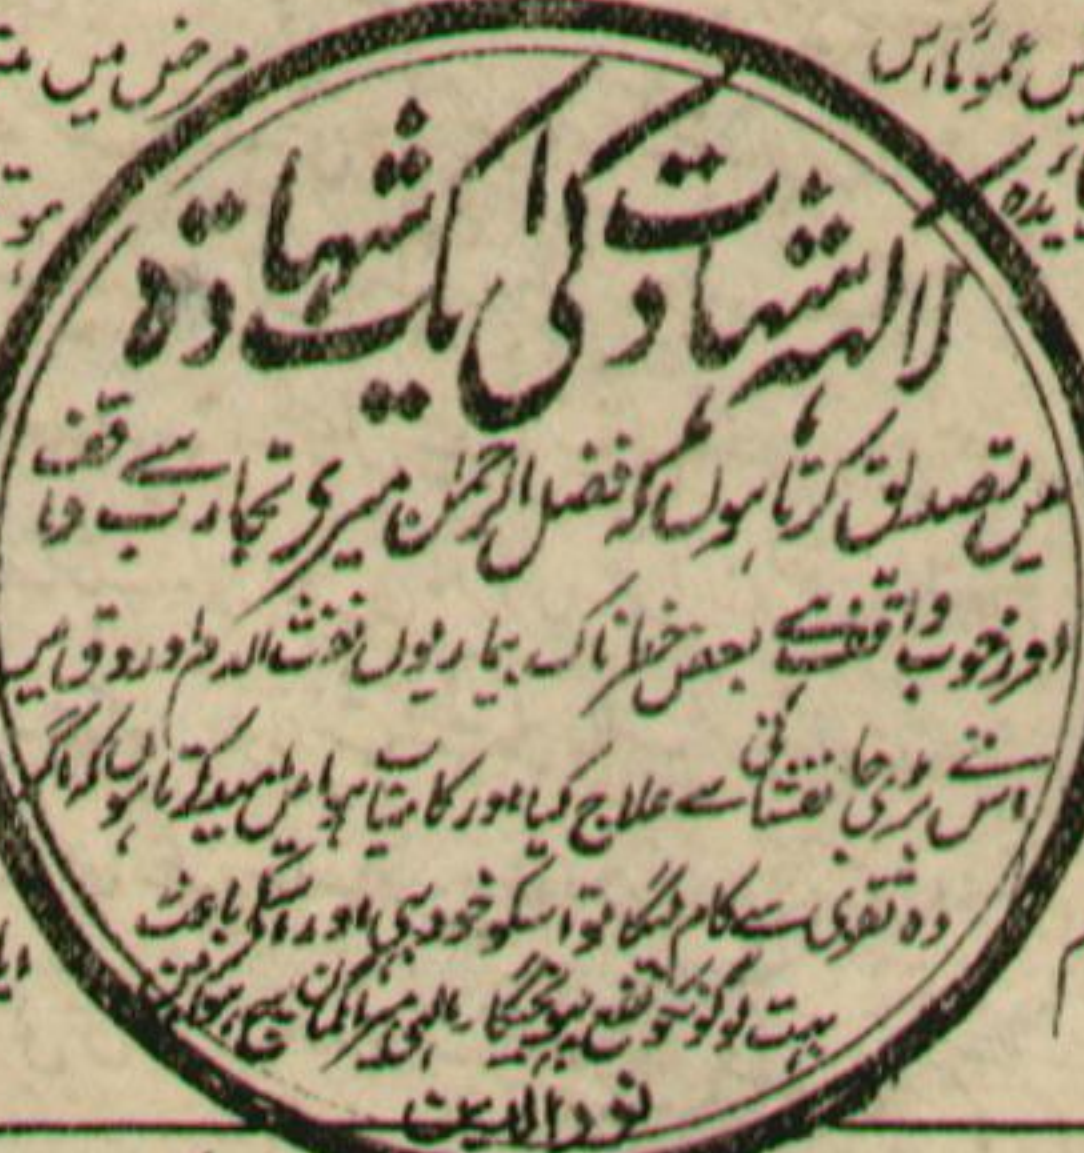 مرض میں
عموماً اس
ئدہ
لا الہ شہادت کی ایک شہادۃ
میں تصدیق کرتا ہوں کہ فضل الرحمٰن میری تجارب سے واقف
اور خوب واقف ہے بعض خطرناک بیماریوں نفث الدم اور دق میں
اس نے بڑی جانفشانی سے علاج کیا اور کامیاب ہوا میں امید کرتا ہوں کہ اگر
وہ تقوی سے کام لیگا تو اسکو خود بھی اور اسکی باعث
بہت لوگونکو بڑا نفع پہونچیگا۔ الٰہی میرا گمان صحیح ہو آمین
نور الدین